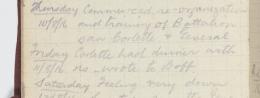 Thursday Commenced re-organization
10/8/16 and training of Battalion
saw Corlette & General
Friday Corlette had dinner with
11/8/16 no wrote to
Saturday Feeling very down